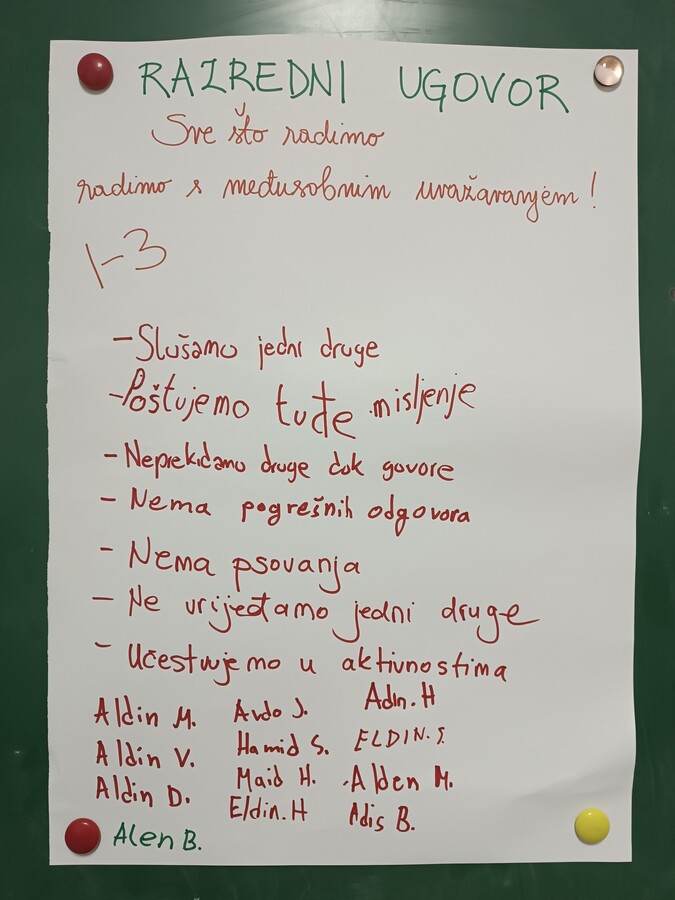 RAZREDNI UGOVOR
Sve što radimo
radimo s međusobnim uvažavanjem!
1-3
- Slušamo jedni druge
- Poštujemo tuđe misljenje
- Neprekidamo druge dok govore
- Nema pogrešnih odgovora
- Nema psovanja
- Ne vrijeđamo jedni druge
- Učestvujemo u aktivnostima
Aldin M. Avdo J. Adn. H
Aldin V. Hamid S. ELDIN. S.
Aldin D. Maid H. Alden M.
Eldin. H Adis B.
Alen B.